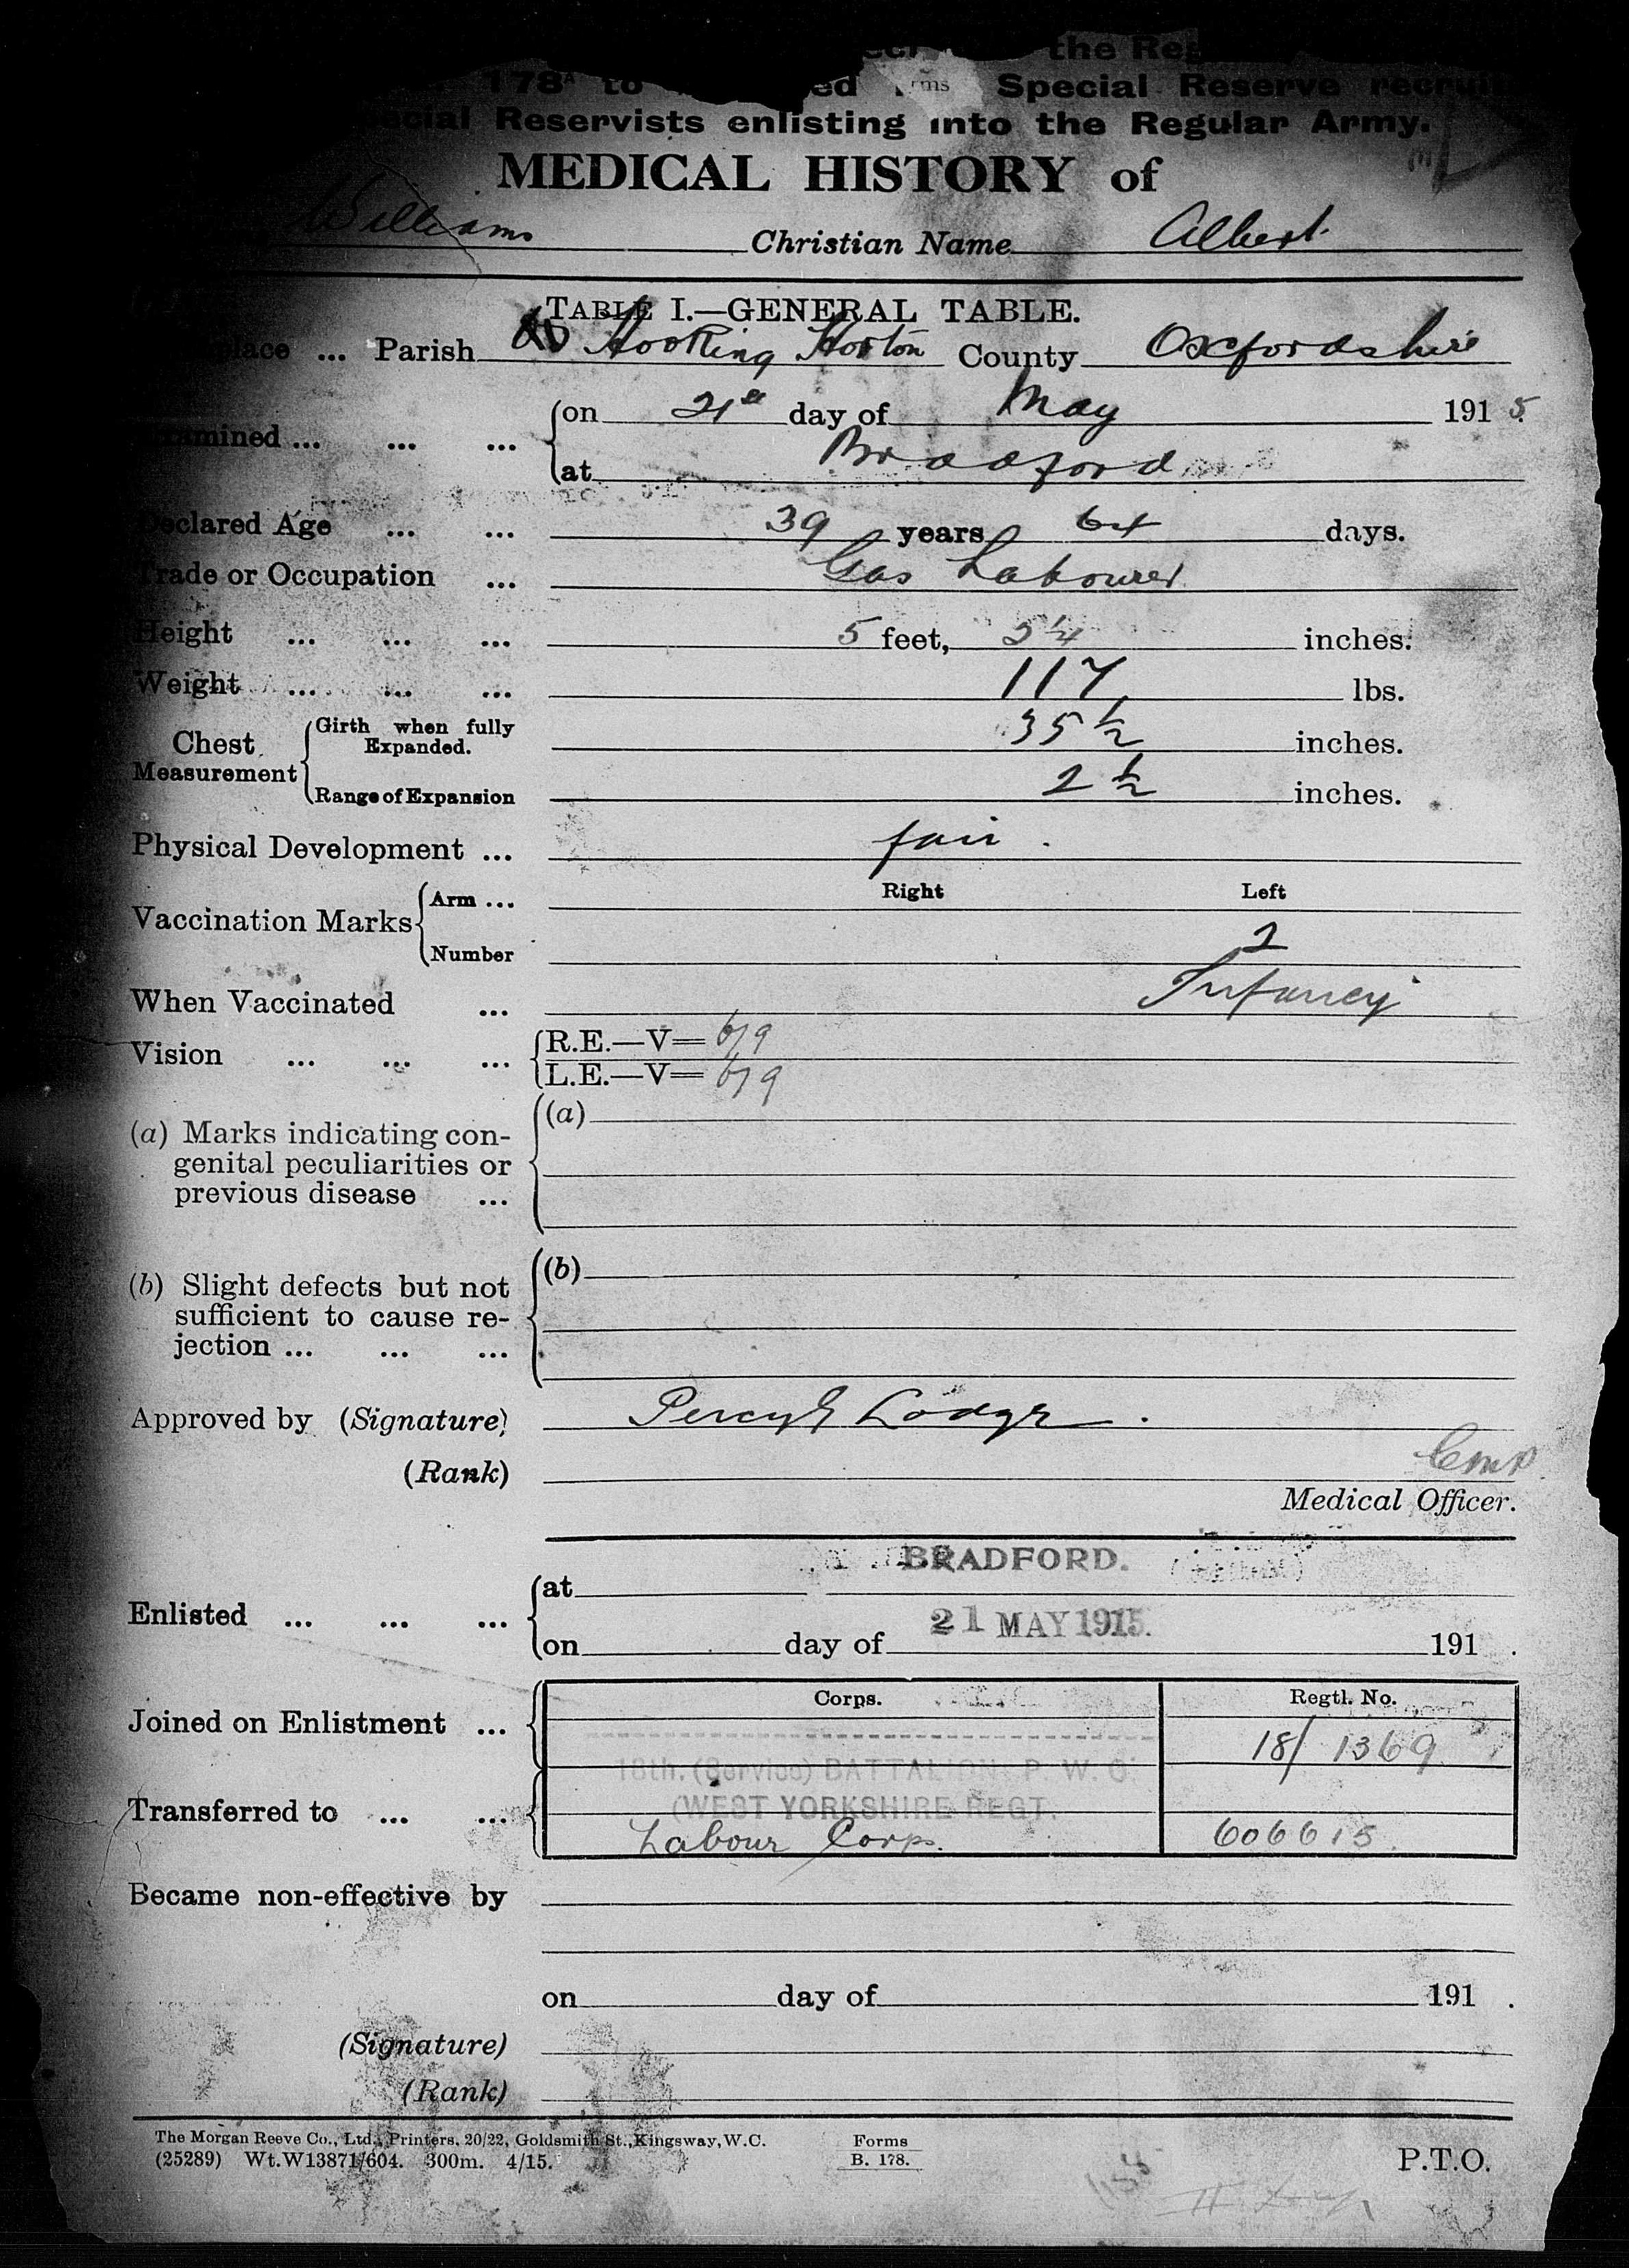 the Reg
178A to ed ms Special Reserve recruit
ecial Reservists enlisting into the Regular Army.
MEDICAL HISTORY of
Williams Christian Name Albert
TABLE I.—GENERAL TABLE.
place ... Parish Hooking Horton County Oxfordshire
amined ... ... ... on 21st day of May 1915
at Bradford
Declared Age ... ... 39 years 64 days.
Trade or Occupation ... Gas Labourer
Height ... ... ... 5 feet, 2 1/4 inches.
Weight ... ... ... 117 lbs.
Chest Measurement Girth when fully Expanded. 35 1/2 inches.
Range of Expansion 2 1/2 inches.
Physical Development ... fair.
Right Left
Vaccination Marks Arm ...
Number 2
When Vaccinated ... Infancy
Vision ... ... ... R.E.—V= 6/9
L.E.—V= 6/9
(a) Marks indicating con-
genital peculiarities or
previous disease ...
(a)
(b) Slight defects but not
sufficient to cause re-
jection ... ... ...
(b)
Approved by (Signature) Percy Lodge.
(Rank)
Medical Officer.
BRADFORD.
Enlisted ... ... ... at
21 MAY 1915.
on day of 191 .
Corps. Regtl. No.
Joined on Enlistment ... 18/1369
18th. (Service) BATTALION P. W. O.
Transferred to ... ... (WEST YORKSHIRE REGT.
Labour Corps. 606615
Became non-effective by
on day of 191 .
(Signature)
(Rank)
The Morgan Reeve Co., Ltd., Printers, 20/22, Goldsmith St., Kingsway, W.C.
(25289) Wt.W13871/604. 300m. 4/15.
Forms
B. 178.
P.T.O.